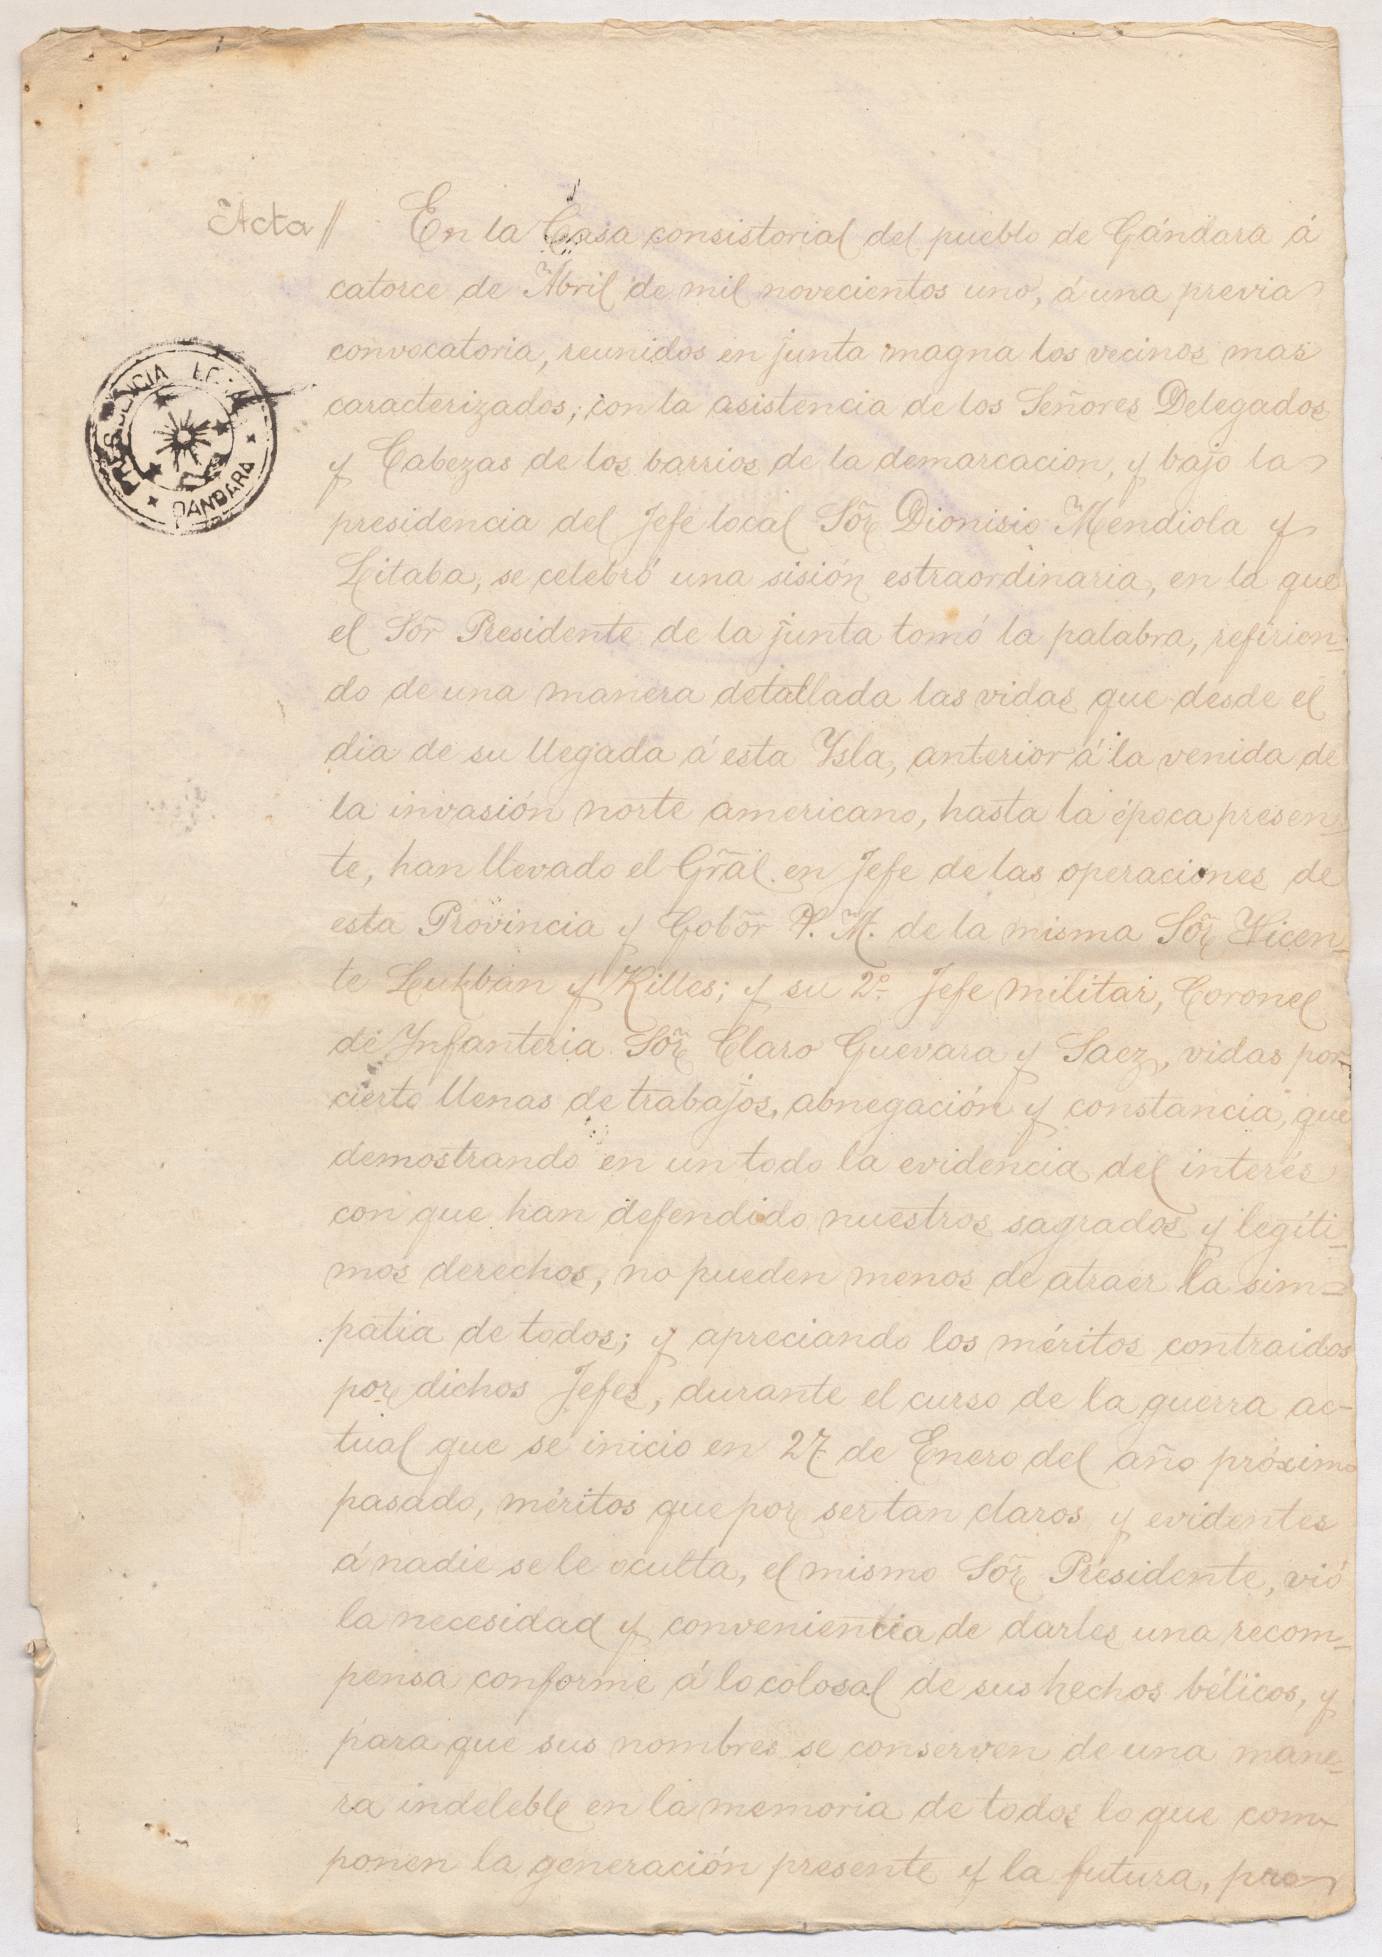 Acta // En la Casa consistorial del pueblo de Gándara á
catorce de Abril de mil novecientos uno, á una previa
convocatoria, reunidos en junta magna los vecinos mas
caracterizados, con la asistencia de los Señores Delegados
y Cabezas de los barrios de la demarcacion, y bajo la
presidencia del Jefe local Sõr Dionisio Mendiola y
Litaba, se celebró una sisión estraordinaria, en la que
el Sõr Presidente de la junta tomó la palabra, refirien-
do de una manera detallada las vidas que desde el
dia de su llegada á esta Ysla, anterior á la venida de
la invasión norte americano, hasta la época presen-
te, han llevado el Grãl. en Jefe de las operaciones de
esta Provincia y Gobõr P. M. de la misma Sõr Vicen-
te Lukban y Rilles; y su 2º Jefe militar, Coronel
de Ynfanteria Sõr Claro Guevara y Saez, vidas por
cierto llenas de trabajos, abnegación y constancia, que
demostrando en un todo la evidencia del interés
con que han defendido nuestros sagrados y legíti-
mos derechos, no pueden menos de atraer la sim-
patia de todos; y apreciando los méritos contraidos
por dichos Jefes, durante el curso de la guerra ac-
tual que se inicio en 27 de Enero del año próximo
pasado, méritos que por ser tan claros y evidentes
á nadie se le oculta, el mismo Sõr Presidente, vió
la necesidad y conveniencia de darles una recom-
pensa conforme á lo colosal de sus hechos bélicos, y
para que sus nombres se conserven de una mane-
ra indeleble en la memoria de todos lo que com-
ponen la generación presente y la futura, pro-
PRESIDENCIA LOCAL
GANDARA